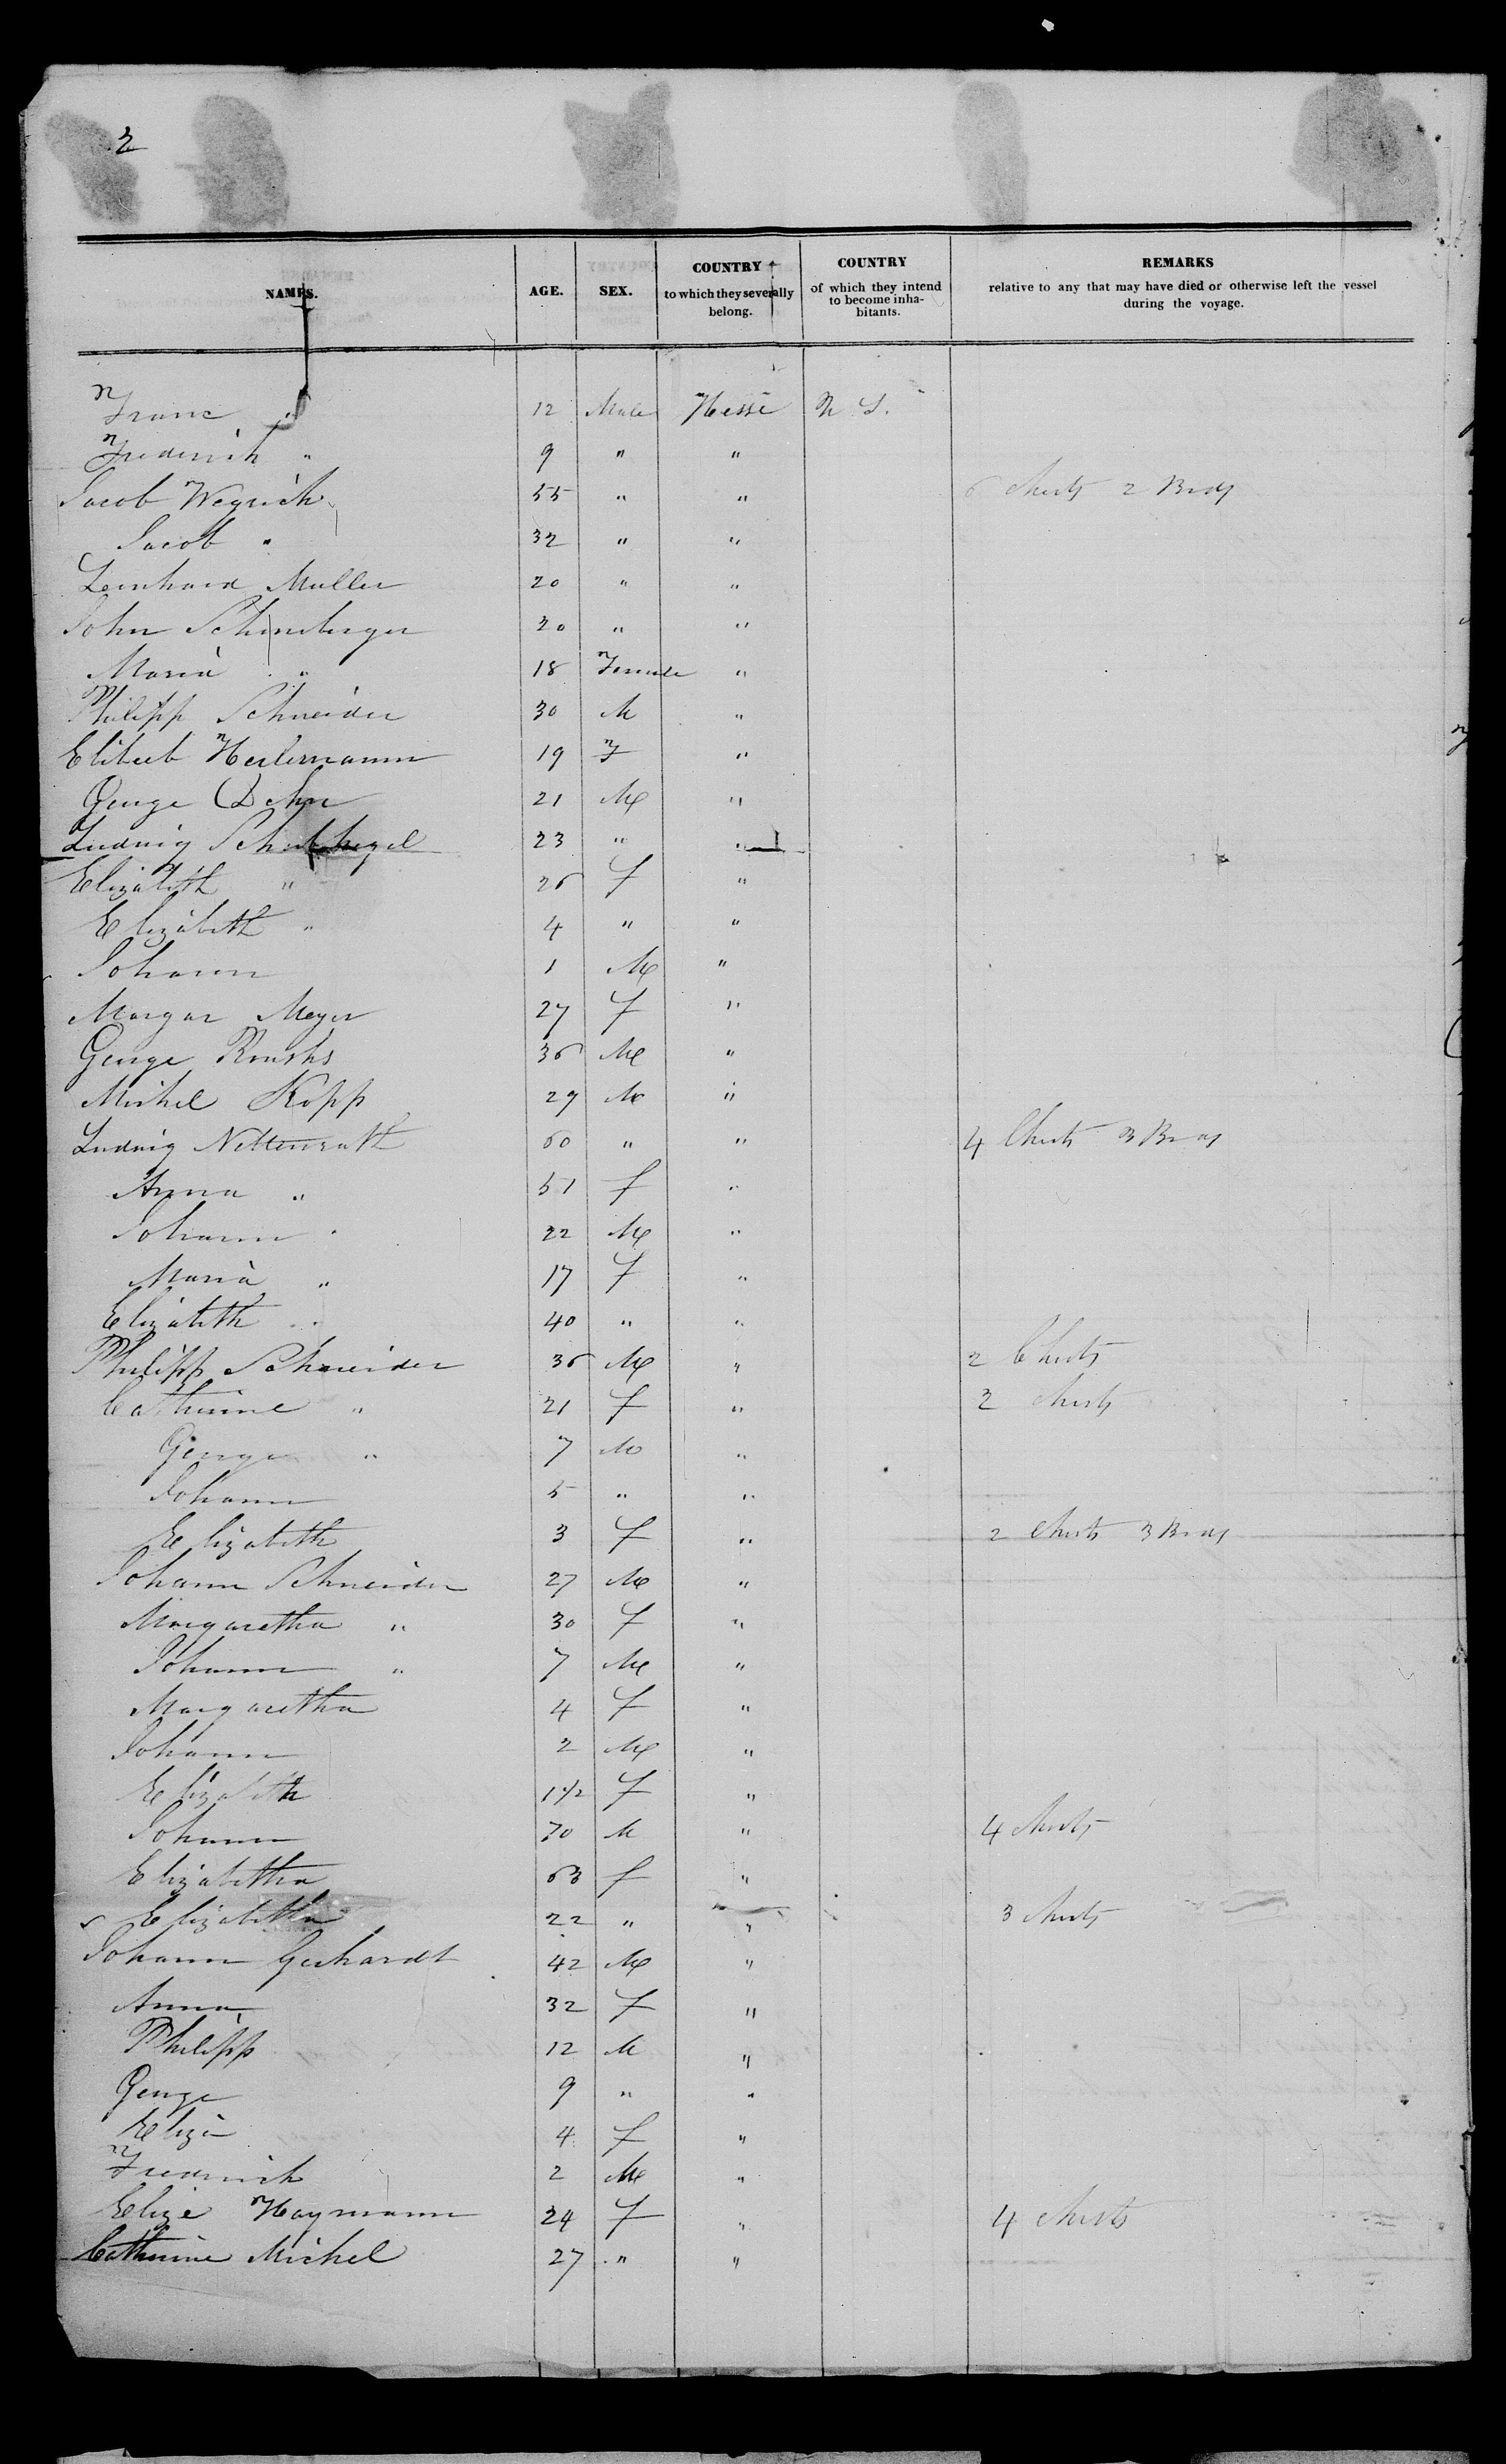 2
NAMES. AGE. SEX. COUNTRY to which they severally belong. COUNTRY of which they intend to become inhabitants. REMARKS relative to any that may have died or otherwise left the vessel during the voyage.
Franc " 12 Male Hesse
Frederich " 9 " "
Jacob Weyrich 55 " " 6 Chests 2 Beds
Jacob " 32 " "
Leonhard Muller 20 " "
John 20 " "
Maria " 18 Female "
Philipp Schneider 30 M "
Heilermann 19 F "
George Dehn 21 M "
Ludwig 23 " "
Elizabeth " 26 f "
Elizabeth " 4 " "
Johann 1 M "
Margar Meyer 27 f "
George 36 M "
Michel Kopp 29 M "
Ludwig Nettenrath 60 " " 4 Chests 3 Beds
Anna " 51 f "
Johann " 22 M "
Maria " 17 f "
Elizabeth " 40 " "
Philipp Schneider 36 M " 2 Chests
Catherine " 21 f " 2 Chests
George " 7 M "
Johann 5 " "
Elizabeth 3 f " 2 Chests 3 Beds
Johann Schneider 27 M "
Margaretha " 30 f "
Johann " 7 M "
Margaretha 4 f "
Johann 2 M "
Elizabeth 1 1/2 f "
Johann 70 M " 4 Chests
Elizabetha 63 f "
Elizabetha 22 " " 3 Chests
Johann Gerhardt 42 M "
Anna 32 f "
Philipp 12 M "
George 9 " "
Eliza 4 f "
Frederich 2 M "
Elize Haymann 24 f " 4 Chests
Catherine Michel 27 " "